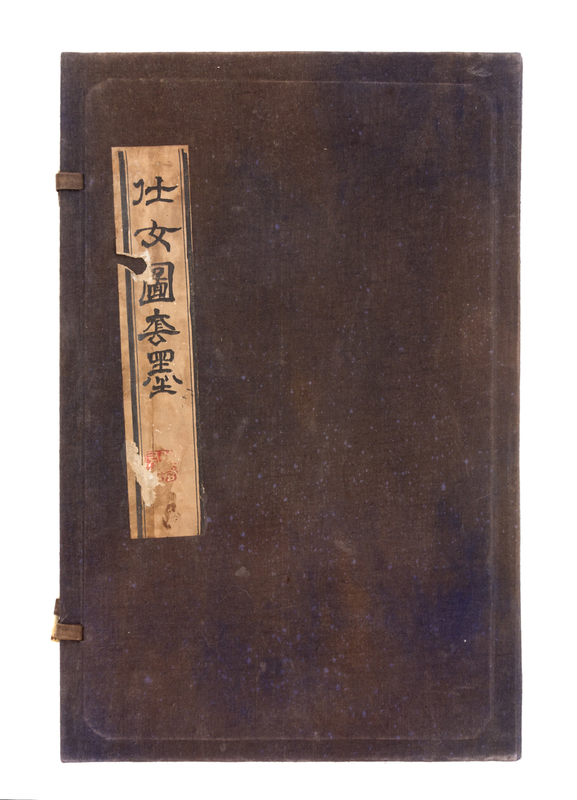 仕女圖套墨